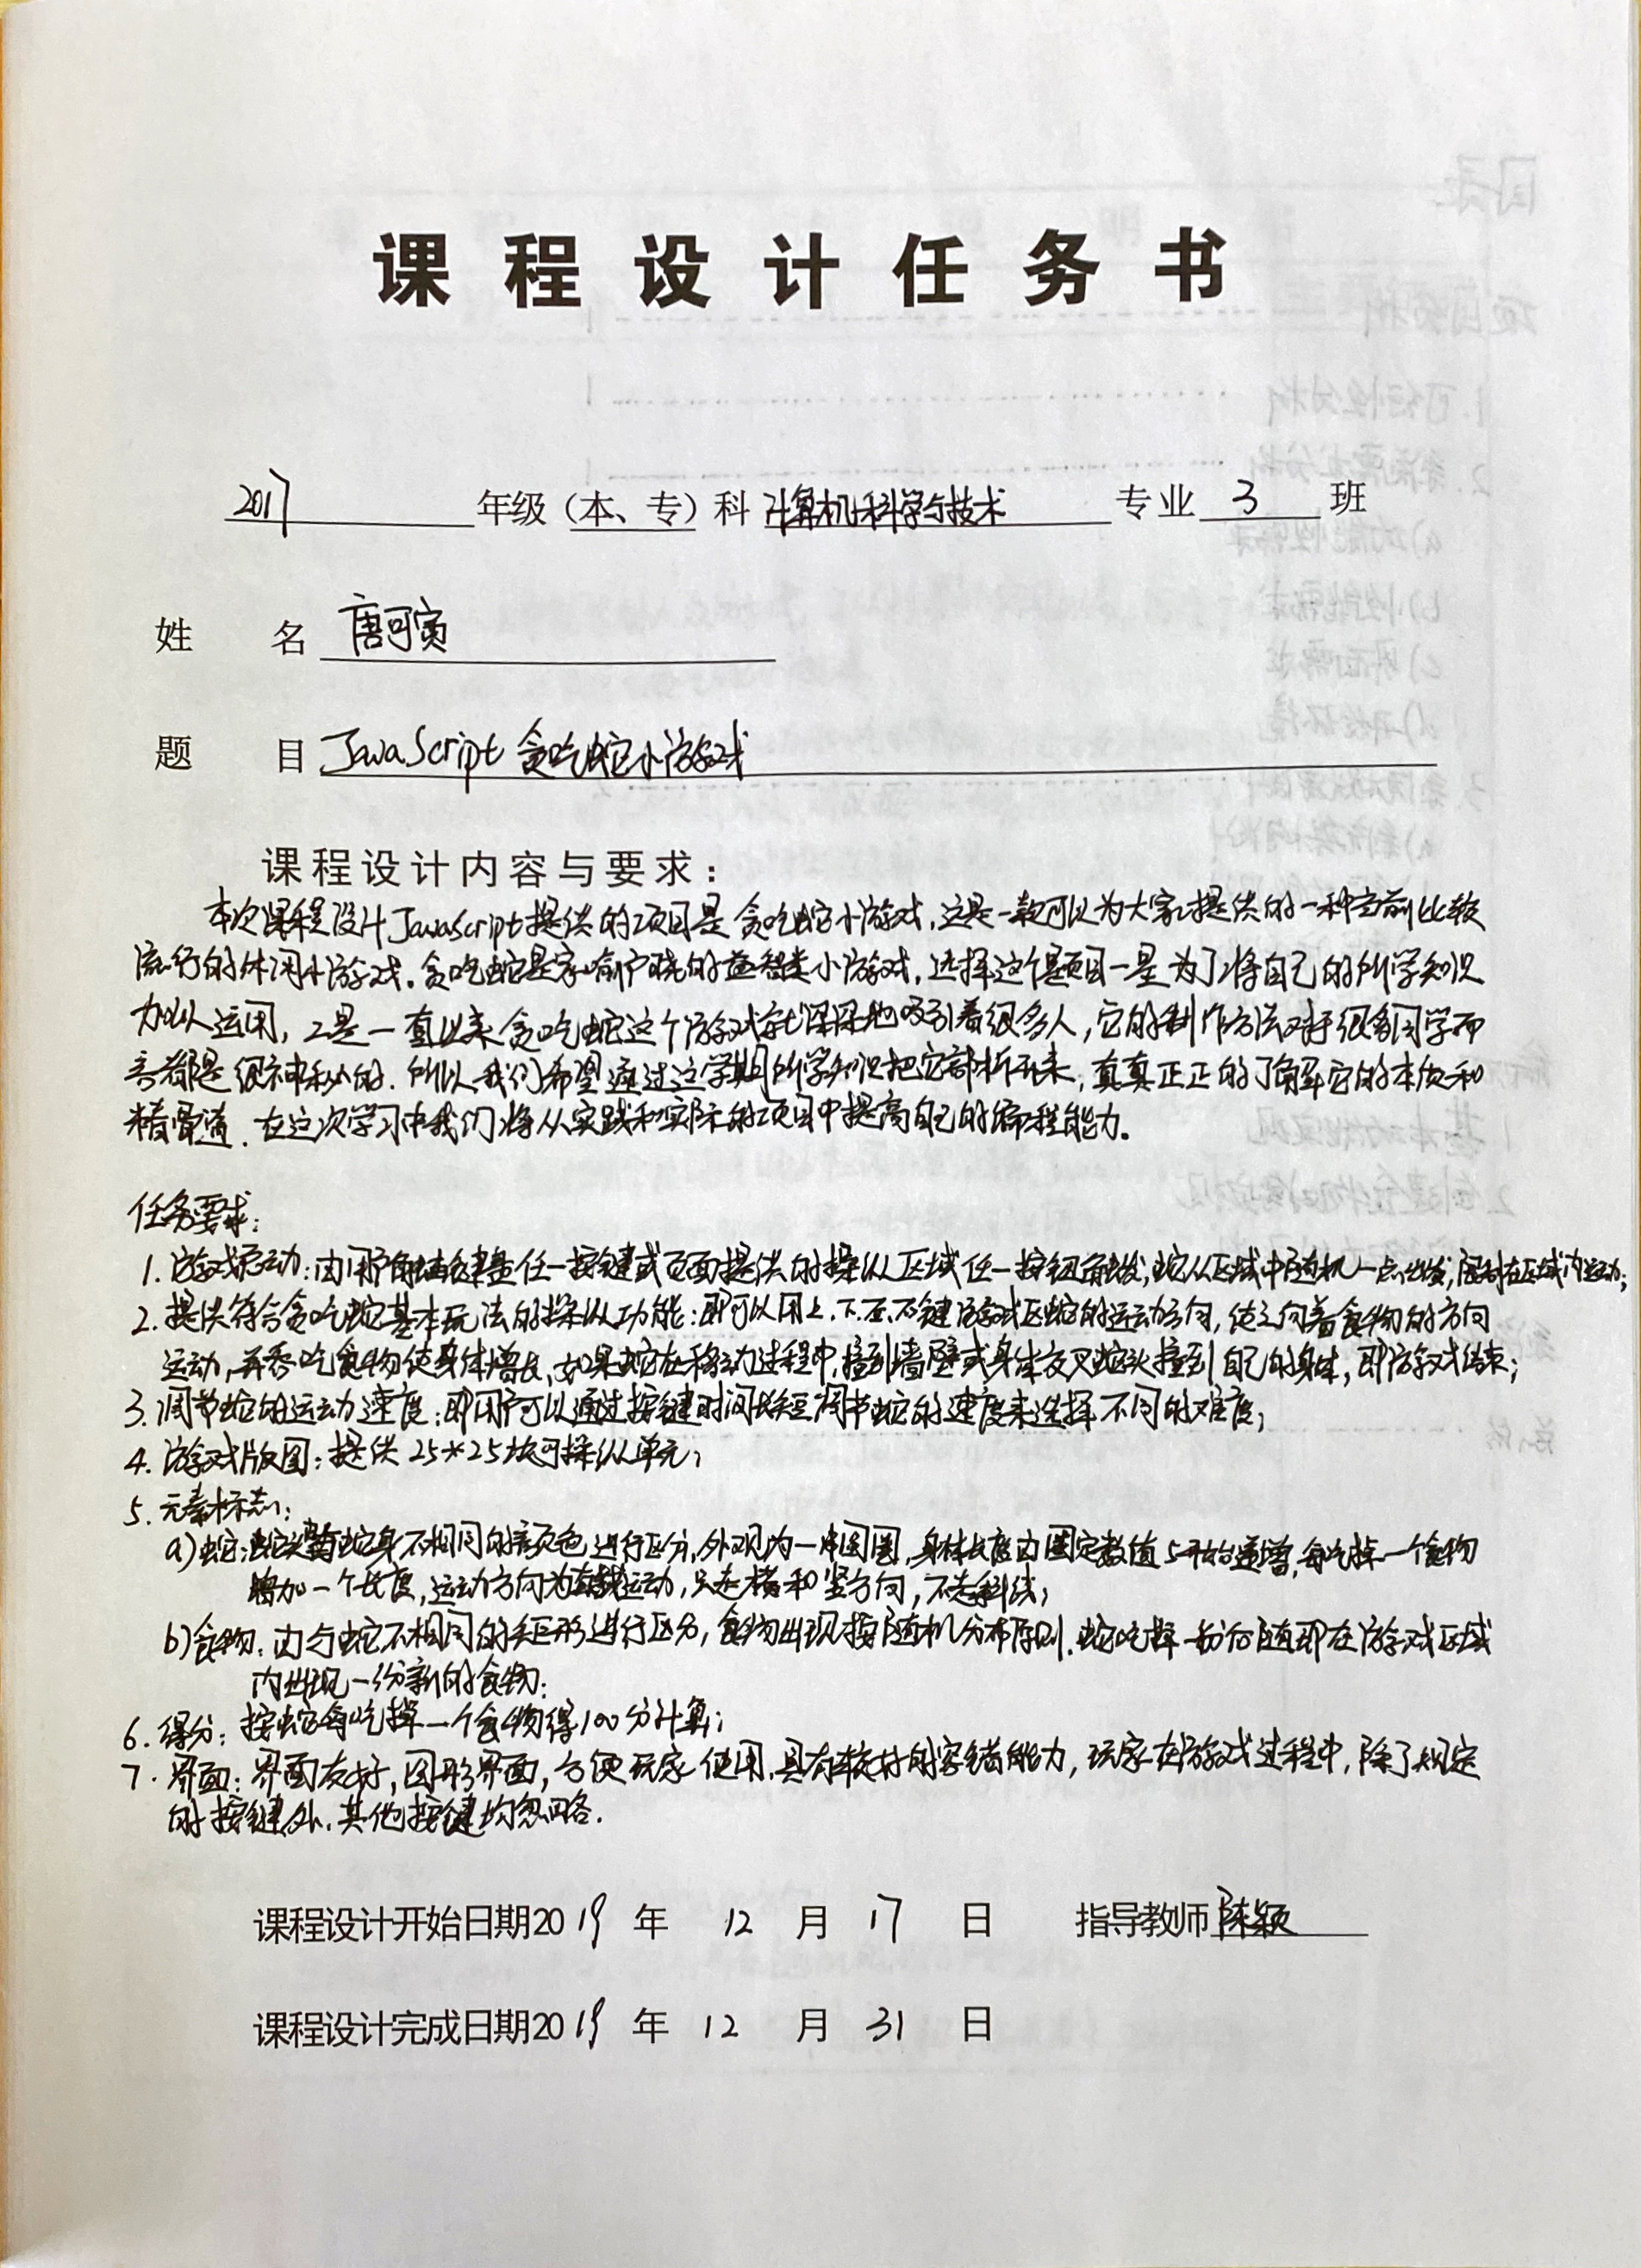 课程设计任务书
2017 年级（本、专）科 计算机科学与技术 专业 3 班
姓 名 唐可寅
题 目 JavaScript 贪吃蛇小游戏
课程设计内容与要求：
本次课程设计JavaScript提供的项目是贪吃蛇小游戏，这是一款可以为大家提供的一种当前比较
流行的休闲小游戏。贪吃蛇是家喻户晓的益智类小游戏，选择这个题目一是为了将自己的所学知识
加以运用，二是一直以来贪吃蛇这个游戏就深深地吸引着很多人，它的制作方法对于很多同学而
言都是很神秘的．所以我们希望通过这学期所学知识把它剖析开来，真真正正的了解它的本质和
精髓．在这次学习中我们将从实践和实际的项目中提高自己的编程能力。
任务要求：
1. 游戏启动：由用户触击键盘任一按键或页面提供的操纵区域任一按钮触发，蛇从区域中随机一点出发，限制在区域内运动；
2. 提供符合贪吃蛇基本玩法的操纵功能：即可以用上、下、左、右键游戏区蛇的运动方向，使之向着食物的方向
运动，并吞吃食物使身体增长，如果蛇在移动过程中，撞到墙壁或身体交叉蛇头撞到自己的身体，即游戏结束；
3. 调节蛇的运动速度：即用户可以通过按键时间长短调节蛇的速度来选择不同的难度；
4. 游戏版图：提供25*25块可操纵单元；
5. 元素标志：
a) 蛇：蛇头与蛇身不相同的颜色进行区分，外观为一串圆圈，身体长度由固定数值5开始递增，每吃掉一个食物
增加一个长度，运动方向为直线运动，只走横和竖方向，不走斜线；
b) 食物：由与蛇不相同的矩形进行区分，食物出现按随机分布原则．蛇吃掉一份后随即在游戏区域
内出现一份新的食物；
6. 得分：按蛇每吃掉一个食物得100分计算；
7. 界面：界面友好，图形界面，方便玩家使用．具有较好的容错能力，玩家在游戏过程中，除了规定
的按键外，其他按键均忽略．
课程设计开始日期2019 年 12 月 17 日 指导教师 陈颖
课程设计完成日期2019 年 12 月 31 日